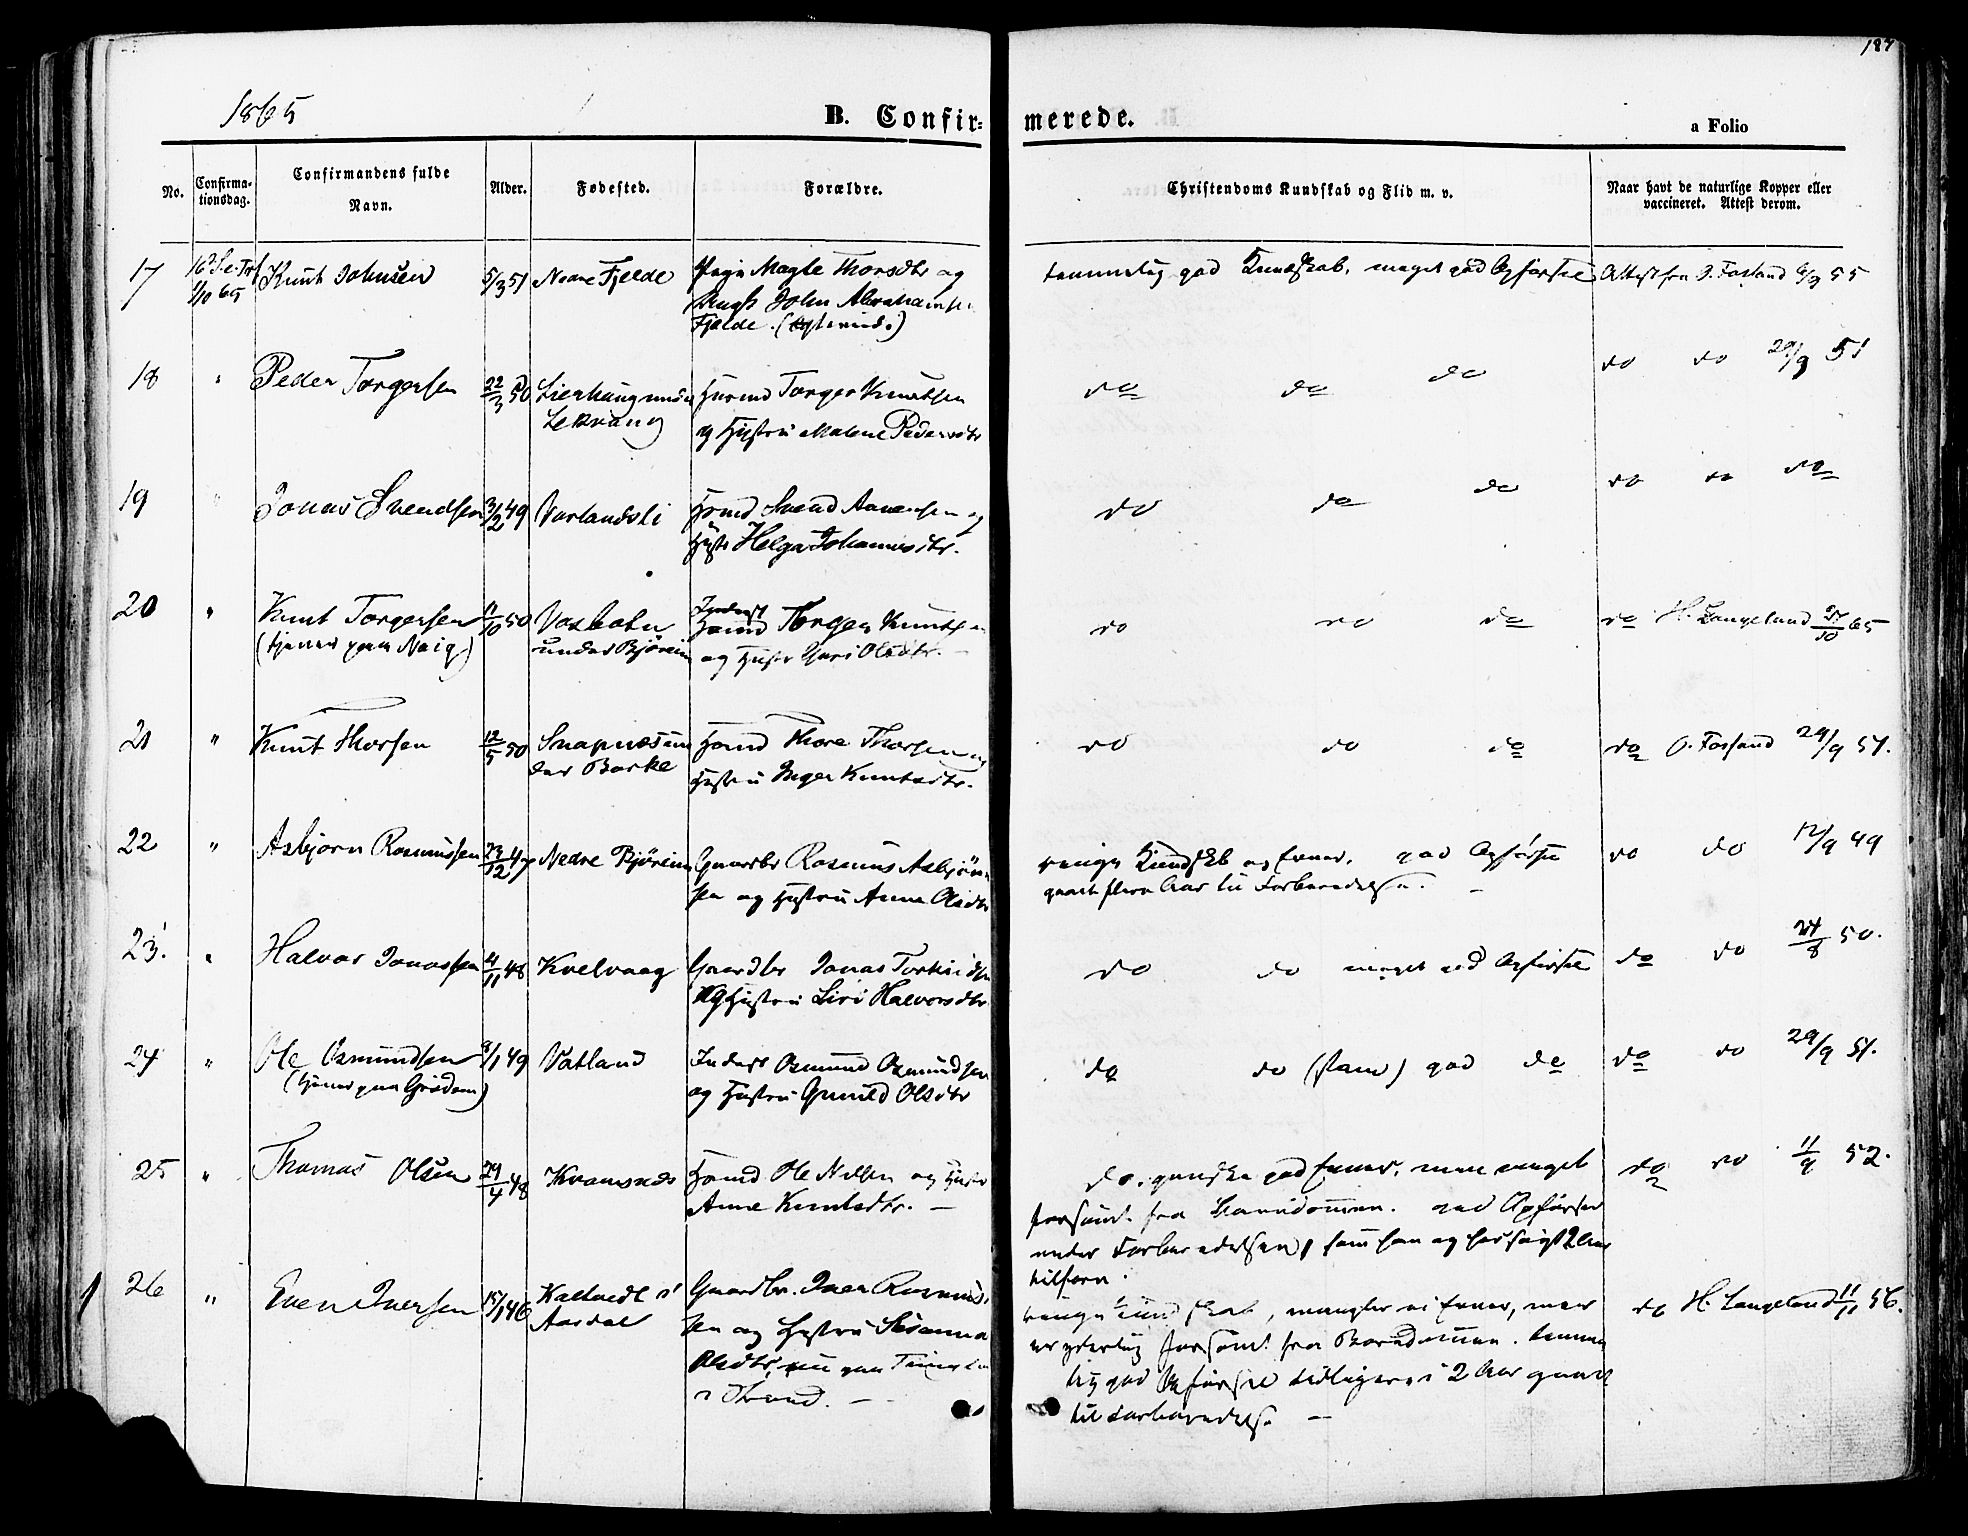 187
1865
B. Confir-
merede.
a Folio
No.
Confirma-
tionsdag.
Confirmandens fulde
Navn.
Alder.
Fødested.
Forældre.
Christendoms Kundskab og Flid m. v.
Naar havt de naturlige Kopper eller
vaccineret. Attest derom.
17 1/10 65 Knut Johnsen 5/3 51 Nedre Fjelde Pige Magle Thorsdtr og
Ungk John Abrahamsen
Fjelde.
temmelig god Kundskab, meget god Opførsel Attest fra O. Fosland 55
18 " Peder Torgersen 22/3 50 Lierhaug under Huusmd Torger Knutsen
Lekvang og Hustru Malene Pedersdtr
do do do do do 29/9 51
19 " Jonas Svendsen 3/2 49 Varlandsli Hsmd Svend Aanensen og
Hustr Helga Johannesdtr.
do do do do do do
20 " Knut Torgersen 11/10 50 Vasbotn Inderst
Hsmd Torger Knutsen
(tjener paa Neig) under Bjøreim og Hustr Guri Olsdtr. —
do do do do H. Langeland 65
21 " Knut Thorsen 12/5 50 Snapnæs un Hsmd Thore Thorsen og
der Borke Hustru Inger Knutsdtr.
do do do do O. Fosland 29/9 51.
22 " Asbjørn Rasmussen 23/12 47 Nedre Bjøreim Gaardbr Rasmus Asbjørn
sen og Hustru Anna Olsdtr
ringe Kundskb og Evner, god Opførsel do do 12/9 49
gaaet flere Aar til Forberedelse. —
23. " Halvor Jonassen 4/11 48 Kvelvaag Gaardbr Jonas Torkildsen
og Hustru Siri Halvorsdtr
do do meget god Opførsel do do 24/8 50.
24 " Ole Osmundsen 8/1 49 Vatland Inderst Osmund Osmundsen
(tjener paa Grødem) og Hustru Gunild Olsdtr
do do (stam) god do do do 29/9 51.
25 " Thomas Olsen 24/4 48 Kramsnes Hsmd Ole Nilsen og Hustr
Anne Knutsdtr. —
do. ganske god Evner, men meget do do 11/9 52.
forsømt fra Barndommen. god Opførsel
under Forberedelsen, som han og har søgt 2 Aar
tilforn.
26 " Even Iversen 15/1 46 Kaltvedt i Gaardbr. Iver Rasmus-
Aardal sen og Hustru Susanna
Olsdtr, nu paa
i Strand. —
ringe Kundskab, mangler ei Evner, men do H. Langeland 11/11 56.
er yderlig forsømt fra Barndommen. temme
lig god Opførsel tidligere i 2 Aar gaaet
til Forberedelse —